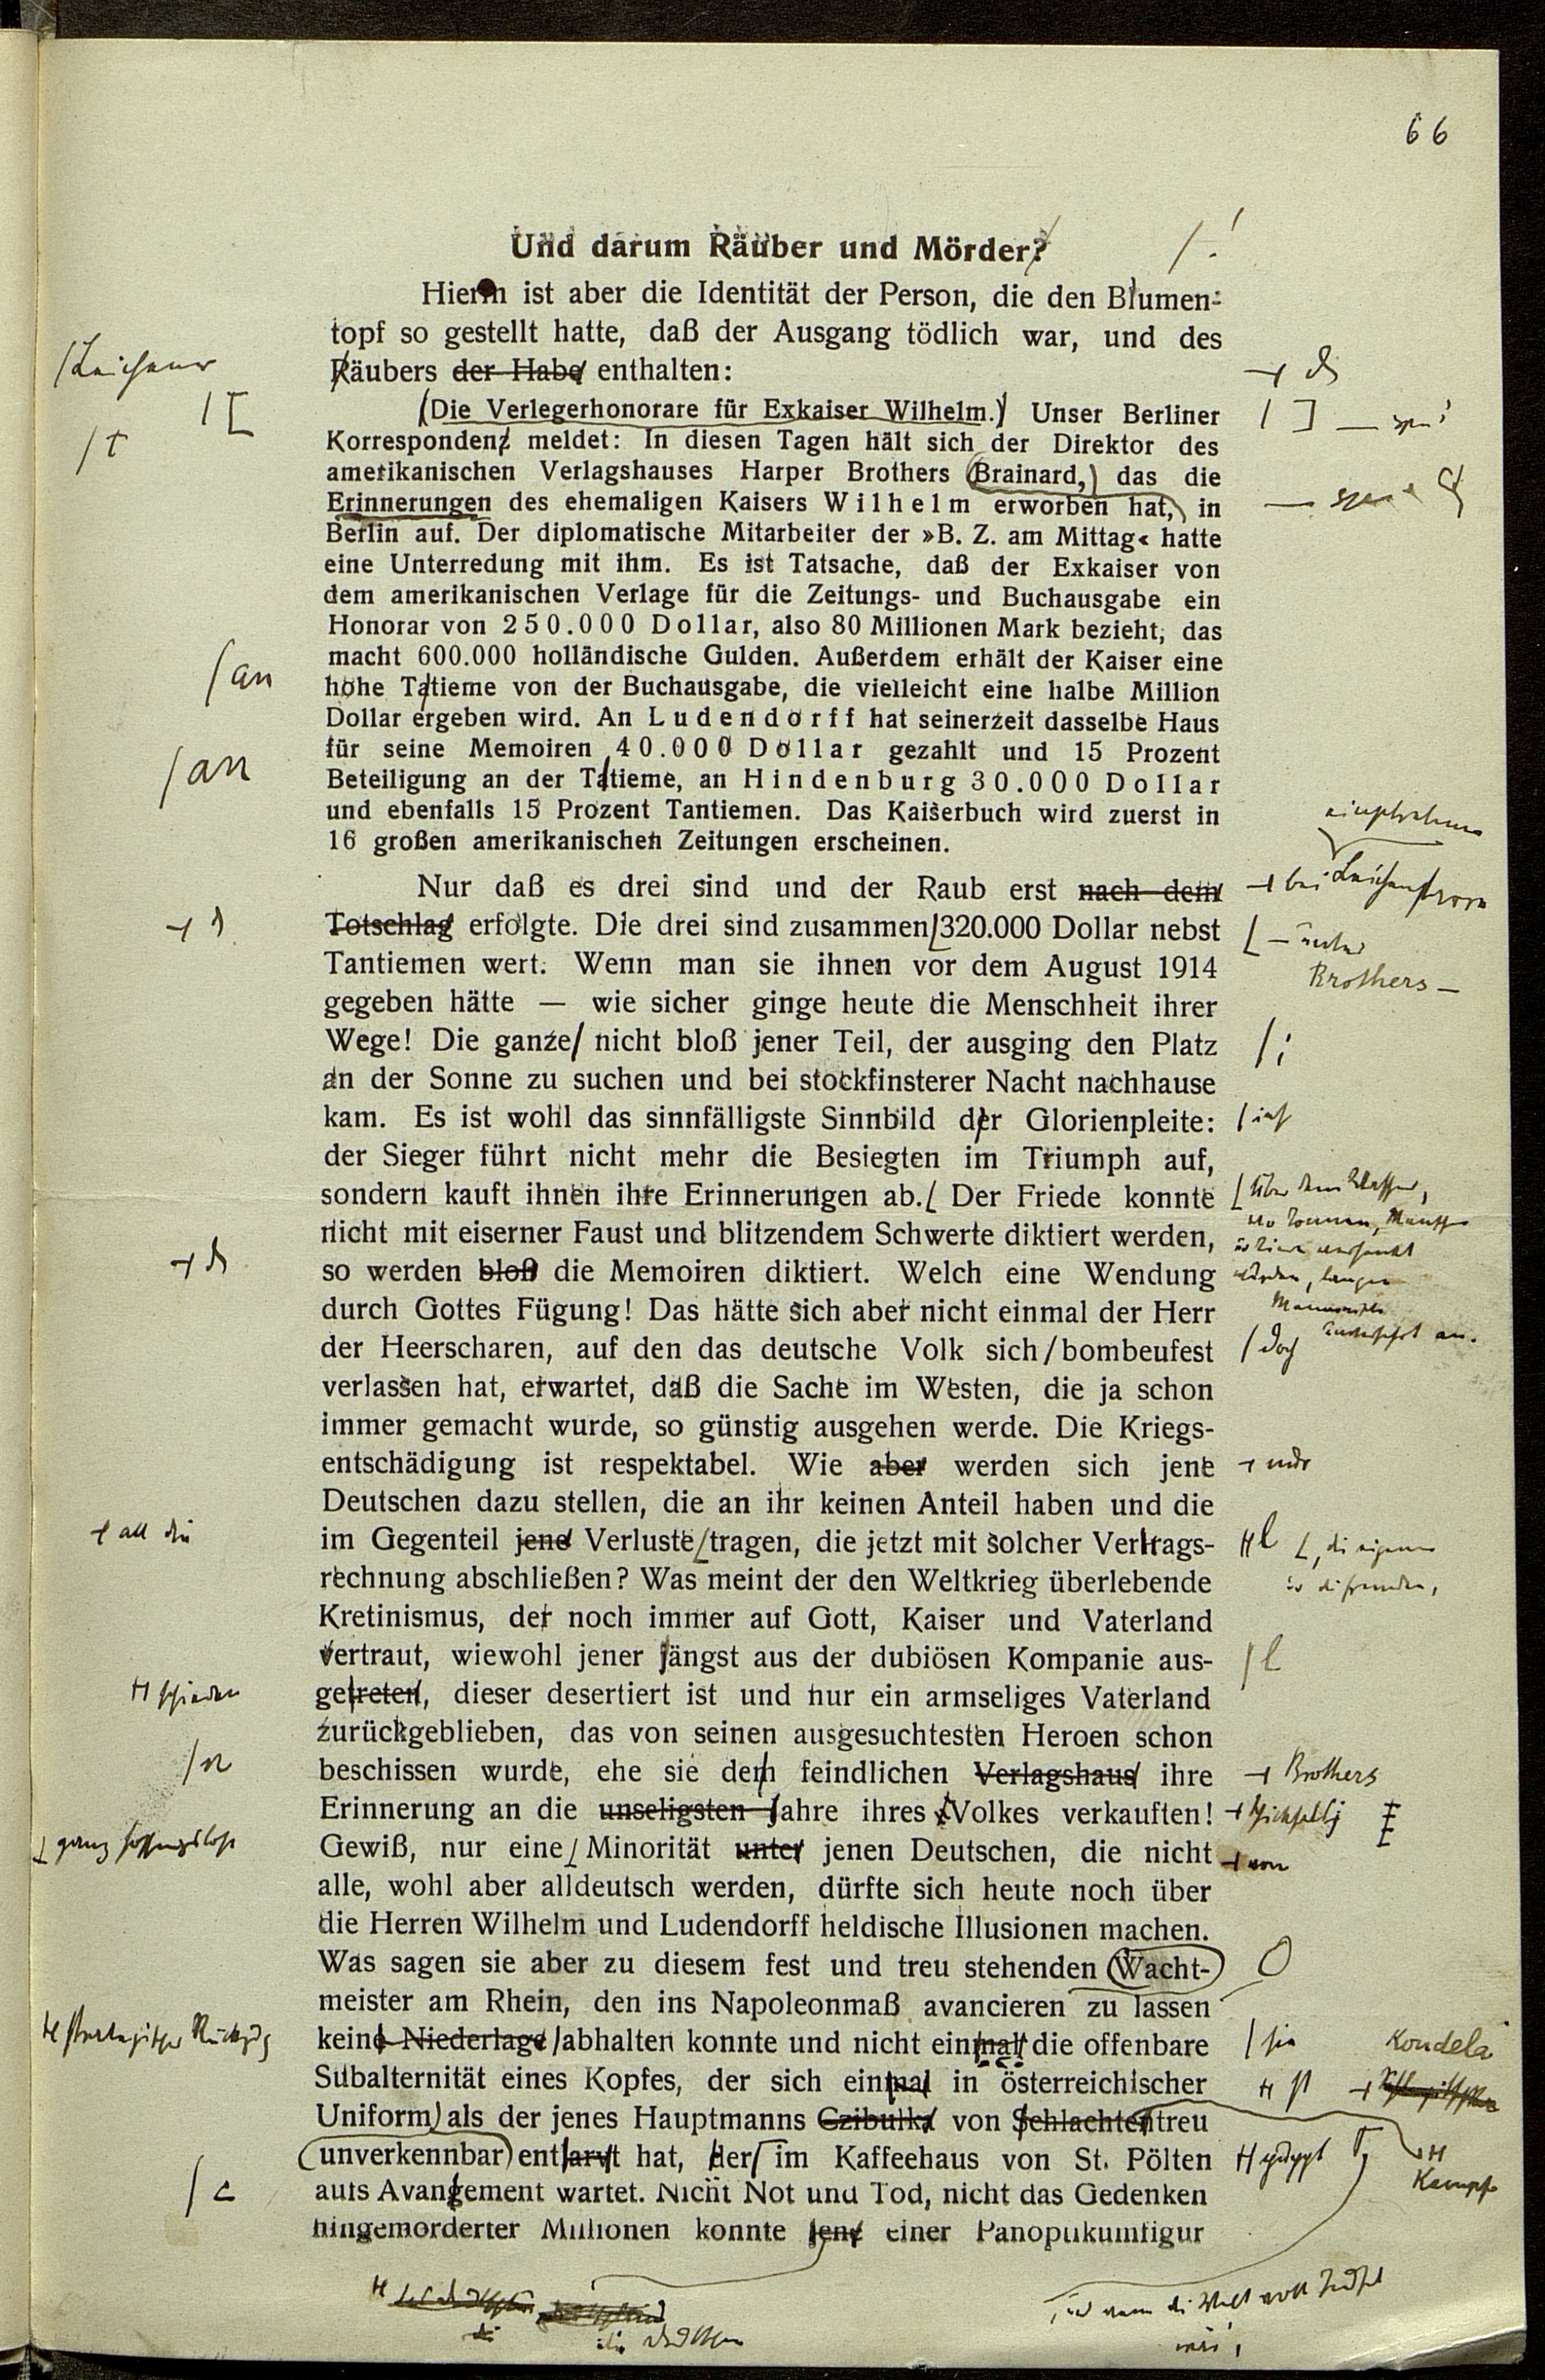 66
Und darum Räuber und Mörder?
/!
Hierin ist aber die Identität der Person, die den Blumen-
topf so gestellt hatte, daß der Ausgang tödlich war, und des
Räubers der Habe enthalten:
(Die Verlegerhonorare für Exkaiser Wilhelm.) Unser Berliner
Korrespondenz meldet: In diesen Tagen hält sich der Direktor des
amerikanischen Verlagshauses Harper Brothers Brainard, das die
Erinnerungen des ehemaligen Kaisers Wilhelm erworben hat, in
Berlin auf. Der diplomatische Mitarbeiter der »B. Z. am Mittag« hatte
eine Unterredung mit ihm. Es ist Tatsache, daß der Exkaiser von
dem amerikanischen Verlage für die Zeitungs- und Buchausgabe ein
Honorar von 250.000 Dollar, also 80 Millionen Mark bezieht, das
macht 600.000 holländische Gulden. Außerdem erhält der Kaiser eine
/an
hohe Tatieme von der Buchausgabe, die vielleicht eine halbe Million
Dollar ergeben wird. An Ludendorff hat seinerzeit dasselbe Haus
für seine Memoiren 40.000 Dollar gezahlt und 15 Prozent
/an
Beteiligung an der Tatieme, an Hindenburg 30.000 Dollar
und ebenfalls 15 Prozent Tantiemen. Das Kaiserbuch wird zuerst in
16 großen amerikanischen Zeitungen erscheinen.
Nur daß es drei sind und der Raub erst nach dem
Totschlag erfolgte. Die drei sind zusammen 320.000 Dollar nebst
Brothers –
Tantiemen wert. Wenn man sie ihnen vor dem August 1914
gegeben hätte — wie sicher ginge heute die Menschheit ihrer
Wege! Die ganze nicht bloß jener Teil, der ausging den Platz
/;
an der Sonne zu suchen und bei stockfinsterer Nacht nachhause
kam. Es ist wohl das sinnfälligste Sinnbild der Glorienpleite:
der Sieger führt nicht mehr die Besiegten im Triumph auf,
sondern kauft ihnen ihre Erinnerungen ab. Der Friede konnte
nicht mit eiserner Faust und blitzendem Schwerte diktiert werden,
so werden bloß die Memoiren diktiert. Welch eine Wendung
durch Gottes Fügung! Das hätte sich aber nicht einmal der Herr
der Heerscharen, auf den das deutsche Volk sich bombeufest
/doch
verlassen hat, erwartet, daß die Sache im Westen, die ja schon
immer gemacht wurde, so günstig ausgehen werde. Die Kriegs-
entschädigung ist respektabel. Wie aber werden sich jene
Deutschen dazu stellen, die an ihr keinen Anteil haben und die
all die
im Gegenteil jene Verluste tragen, die jetzt mit solcher Vertrags-
rechnung abschließen? Was meint der den Weltkrieg überlebende
Kretinismus, der noch immer auf Gott, Kaiser und Vaterland
vertraut, wiewohl jener jängst aus der dubiösen Kompanie aus-
/l
schieden
getreten, dieser desertiert ist und nur ein armseliges Vaterland
zurückgeblieben, das von seinen ausgesuchtesten Heroen schon
/n
beschissen wurde, ehe sie dem feindlichen Verlagshaus ihre
Brothers
Erinnerung an die unseligsten Jahre ihres Volkes verkauften!
ganz hoffnungslose
Gewiß, nur eine Minorität unter jenen Deutschen, die nicht
von
alle, wohl aber alldeutsch werden, dürfte sich heute noch über
die Herren Wilhelm und Ludendorff heldische Illusionen machen.
Was sagen sie aber zu diesem fest und treu stehenden Wacht-
meister am Rhein, den ins Napoleonmaß avancieren zu lassen
strategischer Rückzug
keine Niederlage abhalten konnte und nicht einmal die offenbare
Kondela
Subalternität eines Kopfes, der sich einmal in österreichischer
Uniform als der jenes Hauptmanns Czibulka von Schlachtentreu
unverkennbar entlarvt hat, der im Kaffeehaus von St. Pölten
Kampf
/c
aufs Avangement wartet. Nicht Not und Tod, nicht das Gedenken
hingemorderter Millionen konnte jene einer Panoptikumfigur